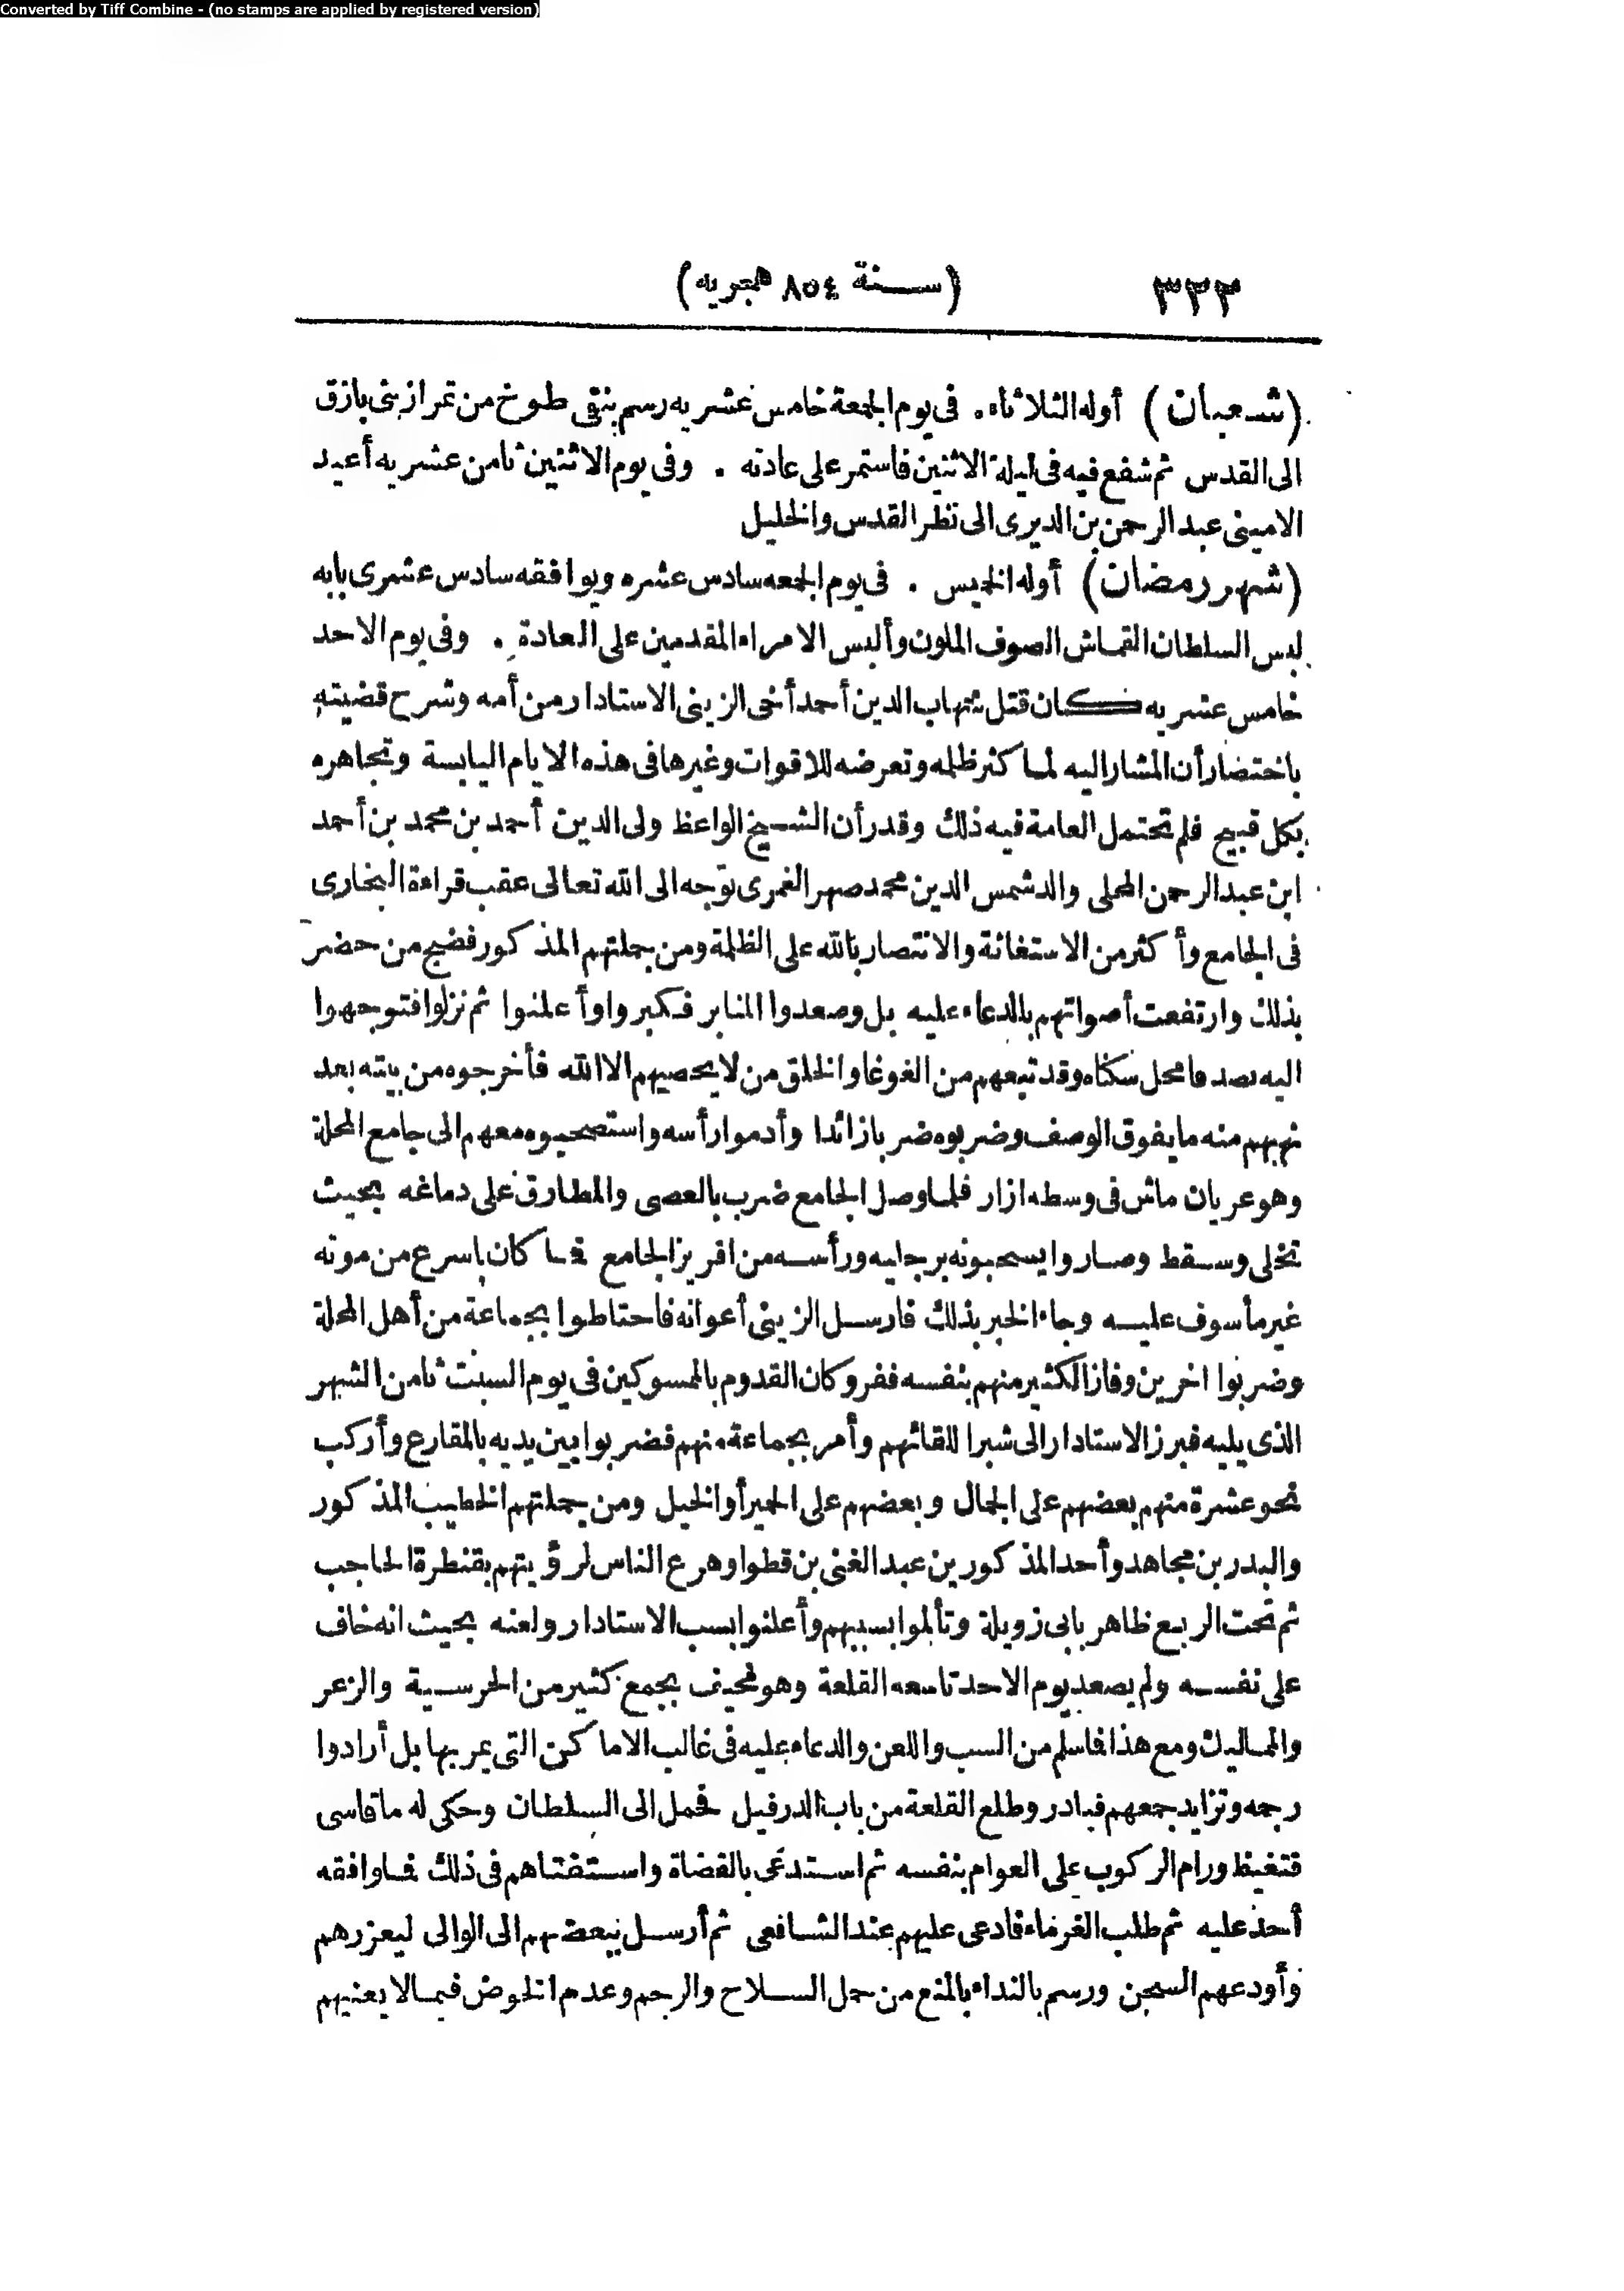 Converted by Tiff Combine - (no stamps are applied by registered version)
٣٣٣ (سنة ٨٥٤ هجريه)
(شعبان) أوله الثلاثاء. فى يوم الجمعة خامس عشريه رسم بنفى طوخ من تمراز بنى بازق
الى القدس ثم شفع فيه فى ليلة الاثنين فاستمر على عادته . وفى يوم الاثنين ثامن عشريه أعيد
الامينى عبد الرحمن بن الديرى الى نظر القدس والخليل
(شهر رمضان) أوله الخميس . فى يوم الجمعه سادس عشره ويوافقه سادس عشرى بابه
لبس السلطان القماش الصوف الملون وألبس الامراء المقدمين على العادة . وفى يوم الاحد
خامس عشريه كان قتل شهاب الدين أحمد أخى الزينى الاستادار من أمه وشرح قضيته
باختصار أن المشار اليه لما كثر ظلمه وتعرضه للاقوات وغيرها فى هذه الايام اليابسة وتجاهره
بكل قبيح فلم تحتمل العامة فيه ذلك وقدر أن الشيخ الواعظ ولى الدين أحمد بن محمد بن أحمد
ابن عبد الرحمن المحلى والد شمس الدين محمد صهر الغمرى توجه الى الله تعالى عقب قراءة البخارى
فى الجامع وأكثر من الاستغاثة والانتصار بالله على الظلمة ومن جملتهم المذكور فضج من حضر
بذلك وارتفعت أصواتهم بالدعاء عليه بل وصعدوا المنابر فكبروا وأعلنوا ثم نزلوا فتوجهوا
اليه بصدفا محل سكناه وقد تبعهم من الغوغا والخلق من لا يحصيهم الا الله فأخرجوه من بيته بعد
نهبهم منه ما يفوق الوصف وضربوه ضربا زائدا وأدموا رأسه واستصحبوه معهم الى جامع المحلة
وهو عريان ماش فى وسطه ازار فلما وصل الجامع ضرب بالعصى والمطارق على دماغه بحيث
تخلى وسقط وصاروا يسحبونه برجليه ورأسه من افريز الجامع فما كان باسرع من موته
غير مأسوف عليه وجاء الخبر بذلك فارسل الزينى أعوانه فاحتاطوا بجماعة من أهل المحلة
وضربوا اخرين وفاز الكثير منهم بنفسه ففر وكان القدوم بالممسوكين فى يوم السبت ثامن الشهر
الذى يليه فبرز الاستادار الى شبرا للقائهم وأمر بجماعة منهم فضربوا بين يديه بالمقارع وأركب
نحو عشرة منهم بعضهم على الجمال وبعضهم على الحمير أو الخيل ومن جملتهم الخطيب المذكور
والبدر بن مجاهد وأحد المذكورين عبد الغنى بن قطوا وهرع الناس لرؤيتهم بقنطرة الحاجب
ثم تحت الربع ظاهر بابى زويلة وتألموا بسببهم وأعلنوا بسب الاستادار ولعنه بحيث انه خاف
على نفسه ولم يصعد يوم الاحد تاسعه القلعة وهو مخيف بجمع كثير من الحرسية والزعر
والمماليك ومع هذا فما سلم من السب واللعن والدعاء عليه فى غالب الاماكن التى يمر بها بل أرادوا
رجمه وتزايد جمعهم فبادر وطلع القلعة من باب الدرفيل فحمل الى السلطان وحكى له ما قاسى
فتغيظ ورام الركوب على العوام بنفسه ثم استدعى بالقضاة واستفتاهم فى ذلك فما وافقه
أحد عليه ثم طلب الغرماء فادعى عليهم عند الشافعى ثم أرسل ببعضهم الى الوالى ليعزرهم
وأودعهم السجن ورسم بالنداء بالمنع من حمل السلاح والرجم وعدم الخوض فيما لا يعنيهم